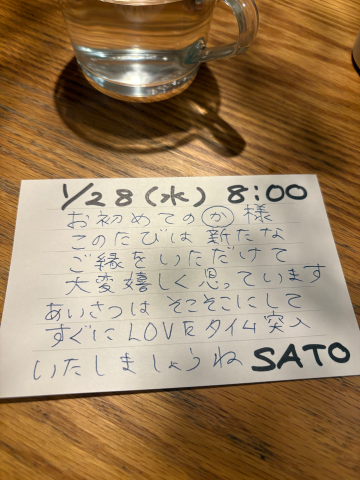 1/28(水) 8:00
お初めての か 様
このたびは 新たな
ご縁をいただけて
大変嬉しく思っています
あいさつは そこそこにして
すぐに LOVEタイム突入
いたしましょうね SATO